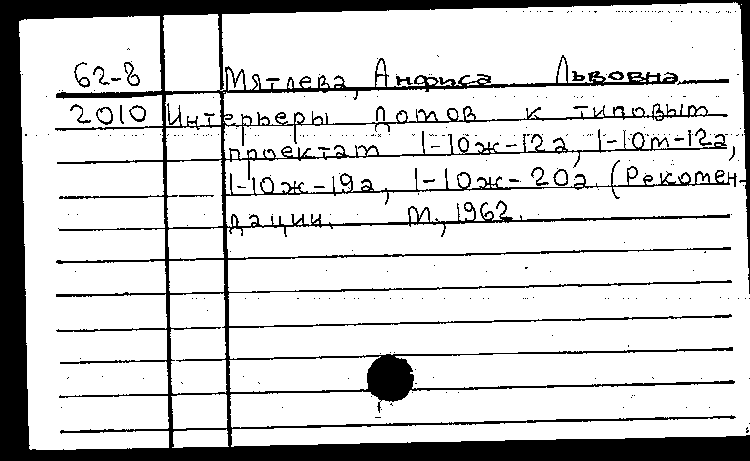 62-8 Мятлева, Анфиса Львовна
2010 Интерьеры домов к типовым
проектам 1-10ж-12а, 1-10м-12а,
1-10ж-19а, 1-10ж-20а. (Рекомен-
дации. М., 1962.